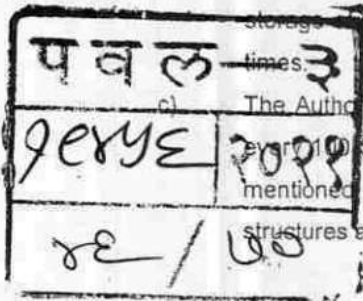 storage
प व ल – ३ times.
c) The Autho
१९४५६ २०२१ every 100
mentioned
structures a
४६ / ७०